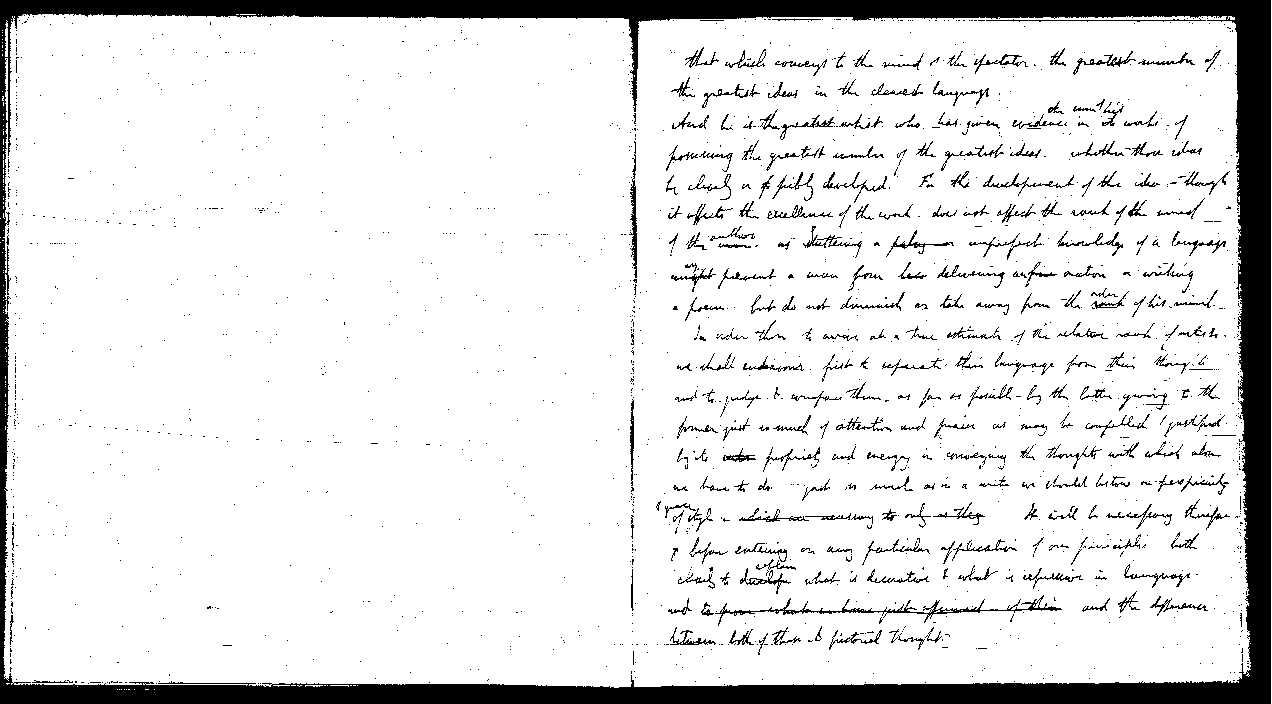 that which conveys to the mind of the spectator. the greatest number of
the greatest ideas in the clearest language.
And he is the greatest artist who has given evidence in the sum of his works. of
possessing the greatest number of the greatest ideas. whether those ideas
be clearly or feebly developed. For the development of the idea - though
it affects the excellence of the work. does not affect the rank of the mind
of the author. as stuttering a palsy or imperfect knowledge of a language
may prevent a man from delivering an fine oration or writing
a poem. but do not diminish or take away from the order rank of his mind.
In order then to arrive at a true estimate of the relative rank of artists.
we shall endeavour first to separate their language from their thoughts
and to judge & compare them. as far as possible - by the latter giving to the
former just so much of attention and praise as may be compelled & justified
by its propriety and energy in conveying the thoughts with which alone
we have to do. just so much as in a writer we should bestow on perspicuity
& grace of style which are necessary to only as they It will be necessary therefore
before entering on any particular application of our principles both
clearly to explain develope what is decorative & what is expressive in language
and to prove what we have just affirmed - of them and the difference
between both of those & pictorial thought -